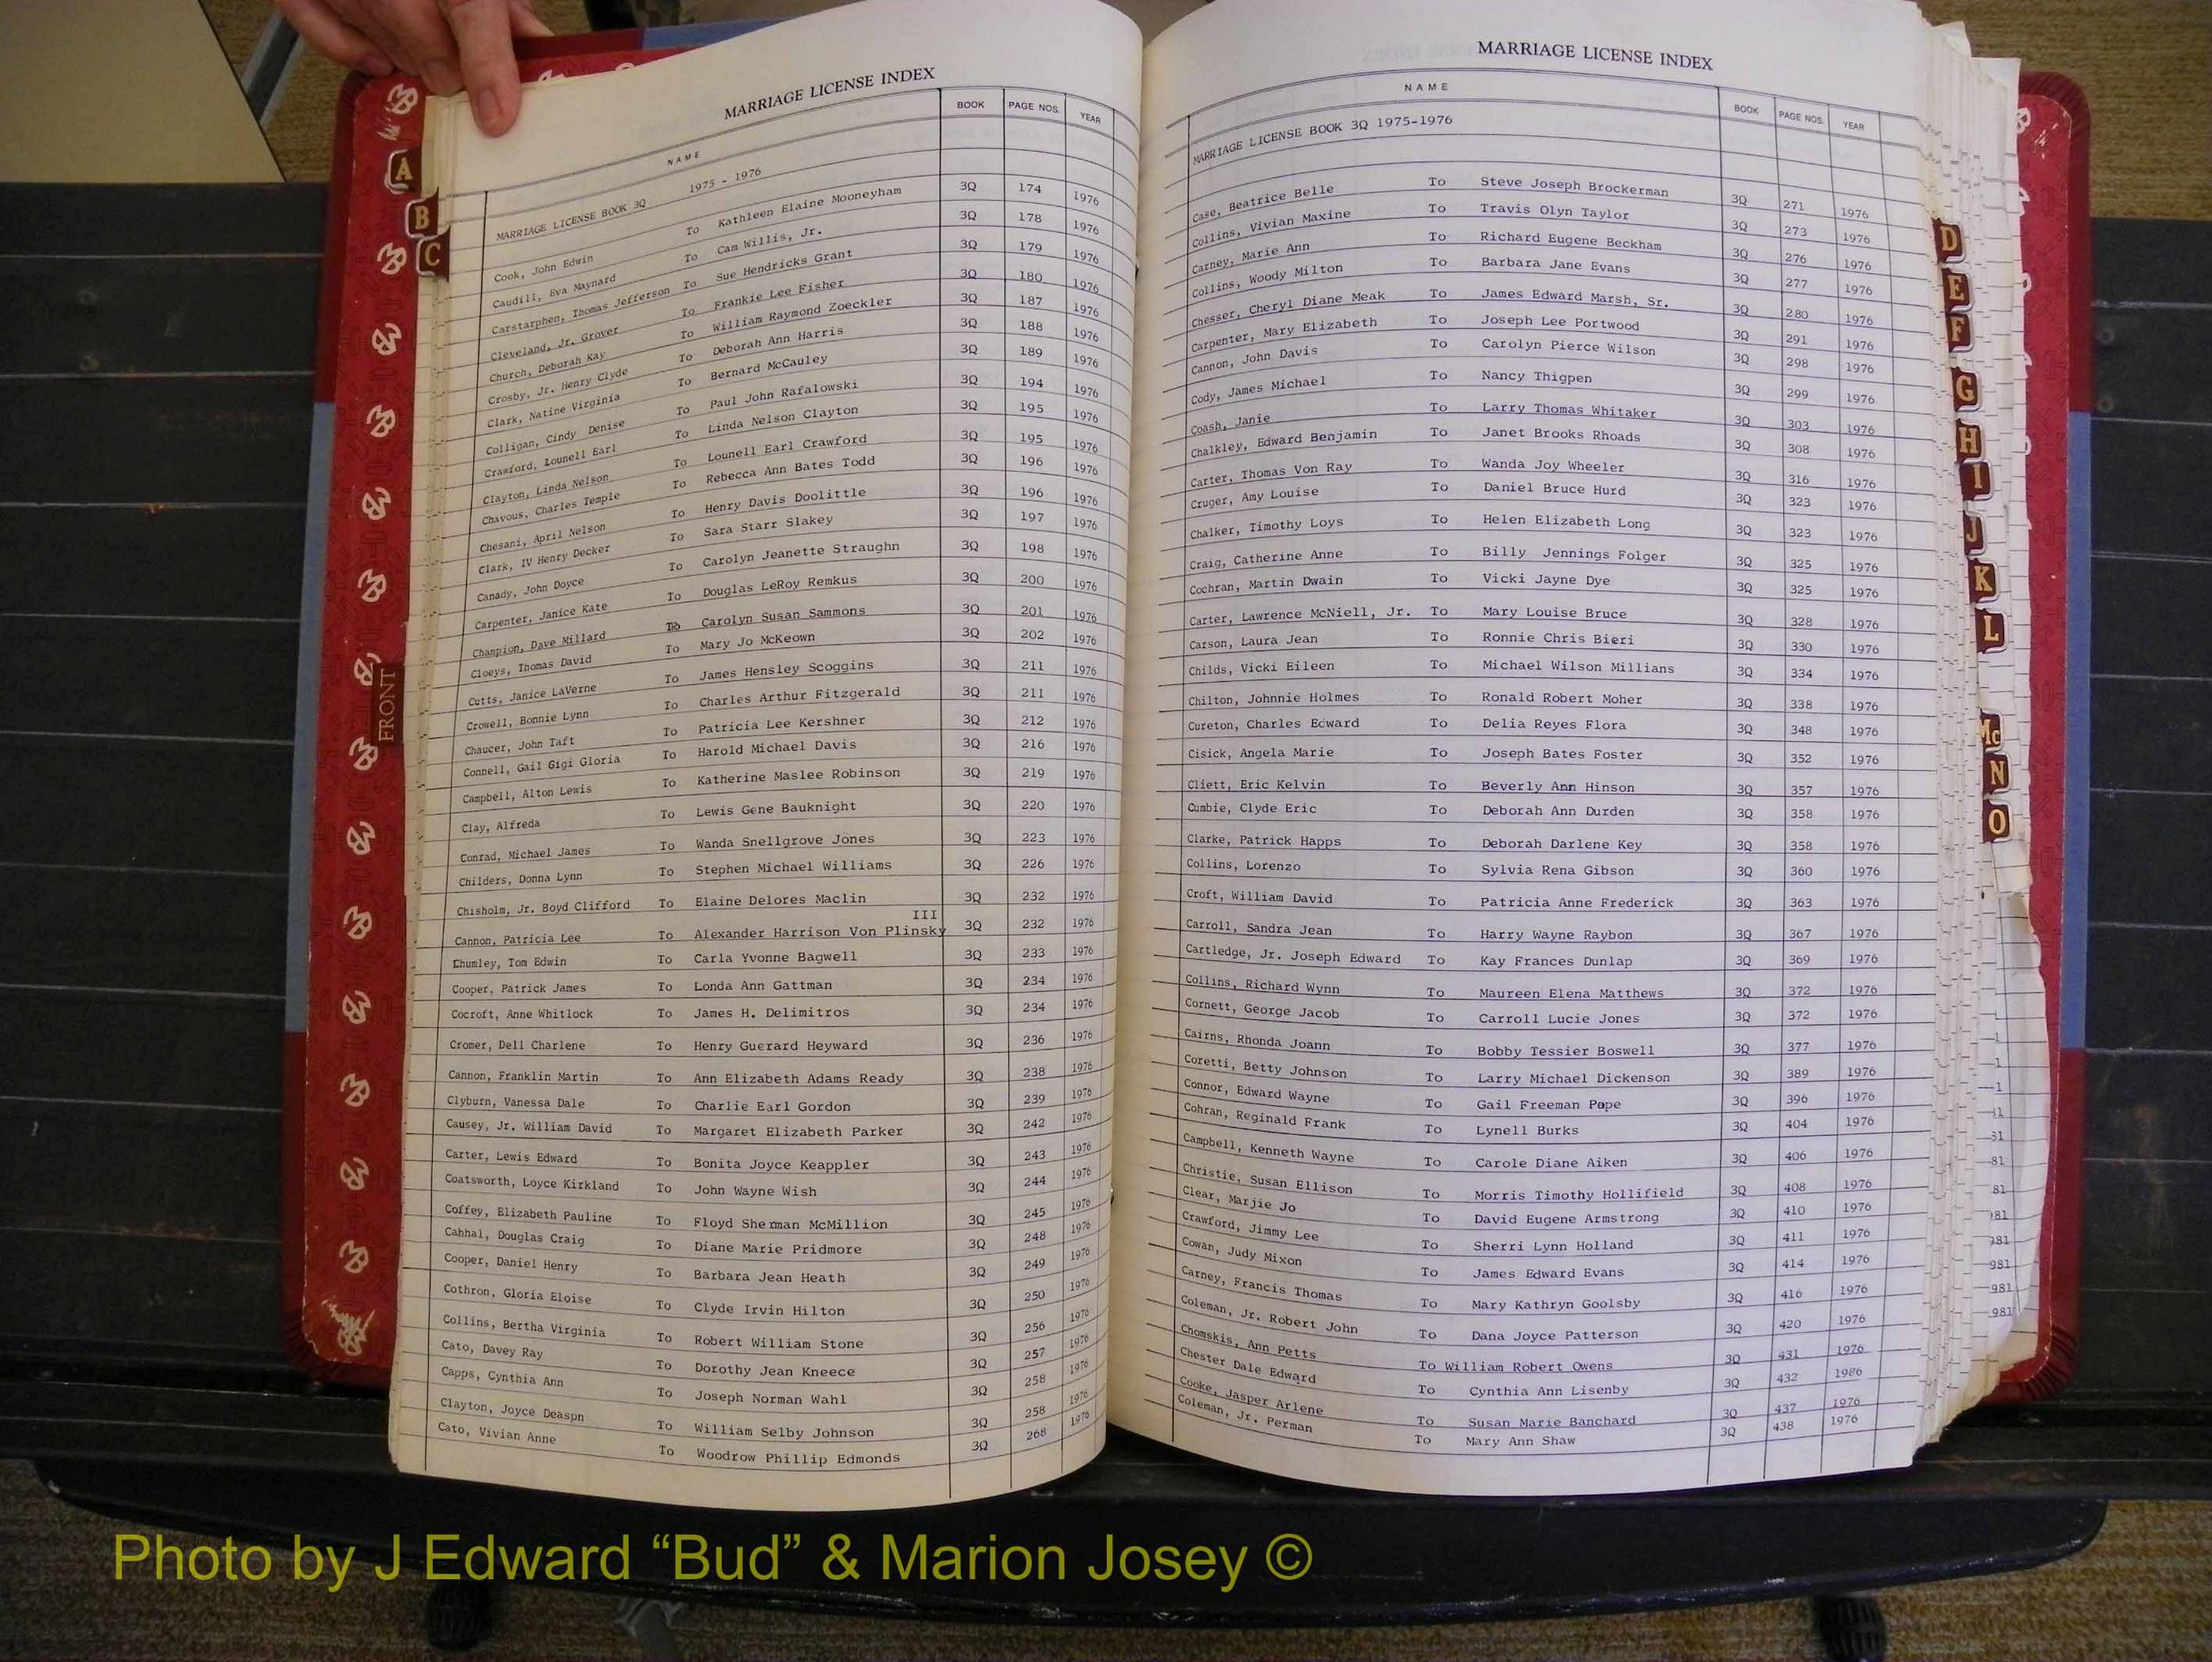 MARRIAGE LICENSE INDEX
NAME BOOK PAGE NOS. YEAR
MARRIAGE LICENSE BOOK 3Q 1975 - 1976
Cook, John Edwin To Kathleen Elaine Mooneyham 3Q 174 1976
Caudill, Eva Maynard To Cam Willis, Jr. 3Q 178 1976
Carstarphen, Thomas Jefferson To Sue Hendricks Grant 3Q 179 1976
Cleveland, Jr. Grover To Frankie Lee Fisher 3Q 180 1976
Church, Deborah Kay To William Raymond Zoeckler 3Q 187 1976
Crosby, Jr. Henry Clyde To Deborah Ann Harris 3Q 188 1976
Clark, Natine Virginia To Bernard McCauley 3Q 189 1976
Colligan, Cindy Denise To Paul John Rafalowski 3Q 194 1976
Crawford, Lounell Earl To Linda Nelson Clayton 3Q 195 1976
Clayton, Linda Nelson To Lounell Earl Crawford 3Q 195 1976
Chavous, Charles Temple To Rebecca Ann Bates Todd 3Q 196 1976
Chesani, April Nelson To Henry Davis Doolittle 3Q 196 1976
Clark, IV Henry Decker To Sara Starr Slakey 3Q 197 1976
Canady, John Doyce To Carolyn Jeanette Straughn 3Q 198 1976
Carpenter, Janice Kate To Douglas LeRoy Remkus 3Q 200 1976
Champion, Dave Millard To Carolyn Susan Sammons 3Q 201 1976
Cloeys, Thomas David To Mary Jo McKeown 3Q 202 1976
Cutts, Janice LaVerne To James Hensley Scoggins 3Q 211 1976
Crowell, Bonnie Lynn To Charles Arthur Fitzgerald 3Q 211 1976
Chaucer, John Taft To Patricia Lee Kershner 3Q 212 1976
Connell, Gail Gigi Gloria To Harold Michael Davis 3Q 216 1976
Campbell, Alton Lewis To Katherine Maslee Robinson 3Q 219 1976
Clay, Alfreda To Lewis Gene Bauknight 3Q 220 1976
Conrad, Michael James To Wanda Snellgrove Jones 3Q 223 1976
Childers, Donna Lynn To Stephen Michael Williams 3Q 226 1976
Chisholm, Jr. Boyd Clifford To Elaine Delores Maclin 3Q 232 1976
III
Cannon, Patricia Lee To Alexander Harrison Von Plinsky 3Q 232 1976
Chumley, Tom Edwin To Carla Yvonne Bagwell 3Q 233 1976
Cooper, Patrick James To Londa Ann Gattman 3Q 234 1976
Cocroft, Anne Whitlock To James H. Delimitros 3Q 234 1976
Cromer, Dell Charlene To Henry Guerard Heyward 3Q 236 1976
Cannon, Franklin Martin To Ann Elizabeth Adams Ready 3Q 238 1976
Clyburn, Vanessa Dale To Charlie Earl Gordon 3Q 239 1976
Causey, Jr. William David To Margaret Elizabeth Parker 3Q 242 1976
Carter, Lewis Edward To Bonita Joyce Keappler 3Q 243 1976
Coatsworth, Loyce Kirkland To John Wayne Wish 3Q 244 1976
Coffey, Elizabeth Pauline To Floyd Sherman McMillion 3Q 245 1976
Cahhal, Douglas Craig To Diane Marie Pridmore 3Q 248 1976
Cooper, Daniel Henry To Barbara Jean Heath 3Q 249 1976
Cothron, Gloria Eloise To Clyde Irvin Hilton 3Q 250 1976
Collins, Bertha Virginia To Robert William Stone 3Q 256 1976
Cato, Davey Ray To Dorothy Jean Kneece 3Q 257 1976
Capps, Cynthia Ann To Joseph Norman Wahl 3Q 258 1976
Clayton, Joyce Deaspn To William Selby Johnson 3Q 258 1976
Cato, Vivian Anne To Woodrow Phillip Edmonds 3Q 268 1976
MARRIAGE LICENSE INDEX
NAME BOOK PAGE NOS. YEAR
MARRIAGE LICENSE BOOK 3Q 1975-1976
Case, Beatrice Belle To Steve Joseph Brockerman 3Q 271 1976
Collins, Vivian Maxine To Travis Olyn Taylor 3Q 273 1976
Carney, Marie Ann To Richard Eugene Beckham 3Q 276 1976
Collins, Woody Milton To Barbara Jane Evans 3Q 277 1976
Chesser, Cheryl Diane Meak To James Edward Marsh, Sr. 3Q 280 1976
Carpenter, Mary Elizabeth To Joseph Lee Portwood 3Q 291 1976
Cannon, John Davis To Carolyn Pierce Wilson 3Q 298 1976
Cody, James Michael To Nancy Thigpen 3Q 299 1976
Coash, Janie To Larry Thomas Whitaker 3Q 303 1976
Chalkley, Edward Benjamin To Janet Brooks Rhoads 3Q 308 1976
Carter, Thomas Von Ray To Wanda Joy Wheeler 3Q 316 1976
Cruger, Amy Louise To Daniel Bruce Hurd 3Q 323 1976
Chalker, Timothy Loys To Helen Elizabeth Long 3Q 323 1976
Craig, Catherine Anne To Billy Jennings Folger 3Q 325 1976
Cochran, Martin Dwain To Vicki Jayne Dye 3Q 325 1976
Carter, Lawrence McNiell, Jr. To Mary Louise Bruce 3Q 328 1976
Carson, Laura Jean To Ronnie Chris Bieri 3Q 330 1976
Childs, Vicki Eileen To Michael Wilson Millians 3Q 334 1976
Chilton, Johnnie Holmes To Ronald Robert Moher 3Q 338 1976
Cureton, Charles Edward To Delia Reyes Flora 3Q 348 1976
Cisick, Angela Marie To Joseph Bates Foster 3Q 352 1976
Cliett, Eric Kelvin To Beverly Ann Hinson 3Q 357 1976
Cumbie, Clyde Eric To Deborah Ann Durden 3Q 358 1976
Clarke, Patrick Happs To Deborah Darlene Key 3Q 358 1976
Collins, Lorenzo To Sylvia Rena Gibson 3Q 360 1976
Croft, William David To Patricia Anne Frederick 3Q 363 1976
Carroll, Sandra Jean To Harry Wayne Raybon 3Q 367 1976
Cartledge, Jr. Joseph Edward To Kay Frances Dunlap 3Q 369 1976
Collins, Richard Wynn To Maureen Elena Matthews 3Q 372 1976
Cornett, George Jacob To Carroll Lucie Jones 3Q 372 1976
Cairns, Rhonda Joann To Bobby Tessier Boswell 3Q 377 1976
Coretti, Betty Johnson To Larry Michael Dickenson 3Q 389 1976
Connor, Edward Wayne To Gail Freeman Pope 3Q 396 1976
Cohran, Reginald Frank To Lynell Burks 3Q 404 1976
Campbell, Kenneth Wayne To Carole Diane Aiken 3Q 406 1976
Christie, Susan Ellison To Morris Timothy Hollifield 3Q 408 1976
Clear, Marjie Jo To David Eugene Armstrong 3Q 410 1976
Crawford, Jimmy Lee To Sherri Lynn Holland 3Q 411 1976
Cowan, Judy Mixon To James Edward Evans 3Q 414 1976
Carney, Francis Thomas To Mary Kathryn Goolsby 3Q 416 1976
Coleman, Jr. Robert John To Dana Joyce Patterson 3Q 420 1976
Chomskis, Ann Petts To William Robert Owens 3Q 431 1976
Chester Dale Edward To Cynthia Ann Lisenby 3Q 432 1986
Cooke, Jasper Arlene To Susan Marie Banchard 3Q 437 1976
Coleman, Jr. Perman To Mary Ann Shaw 3Q 438 1976
A
B
C
FRONT
D
E
F
G
H
I
J
K
L
Mc
N
O
981
981
981
Photo by J Edward “Bud” & Marion Josey ©